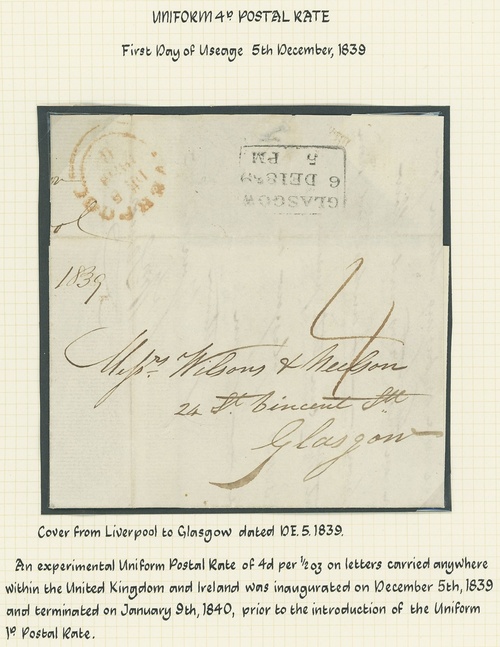 UNIFORM 4D POSTAL RATE
First Day of Useage 5th December, 1839
LIVERPOOL
GLASGOW
6 DE 1839
5 PM
1839
Messrs. Wilsons & Neilson
24 St. Vincent Stt
Glasgow
4
Cover from Liverpool to Glasgow dated DE.5.1839.
An experimental Uniform Postal Rate of 4d per ½oz on letters carried anywhere
within the United Kingdom and Ireland was inaugurated on December 5th, 1839
and terminated on January 9th, 1840, prior to the introduction of the Uniform
1D Postal Rate.